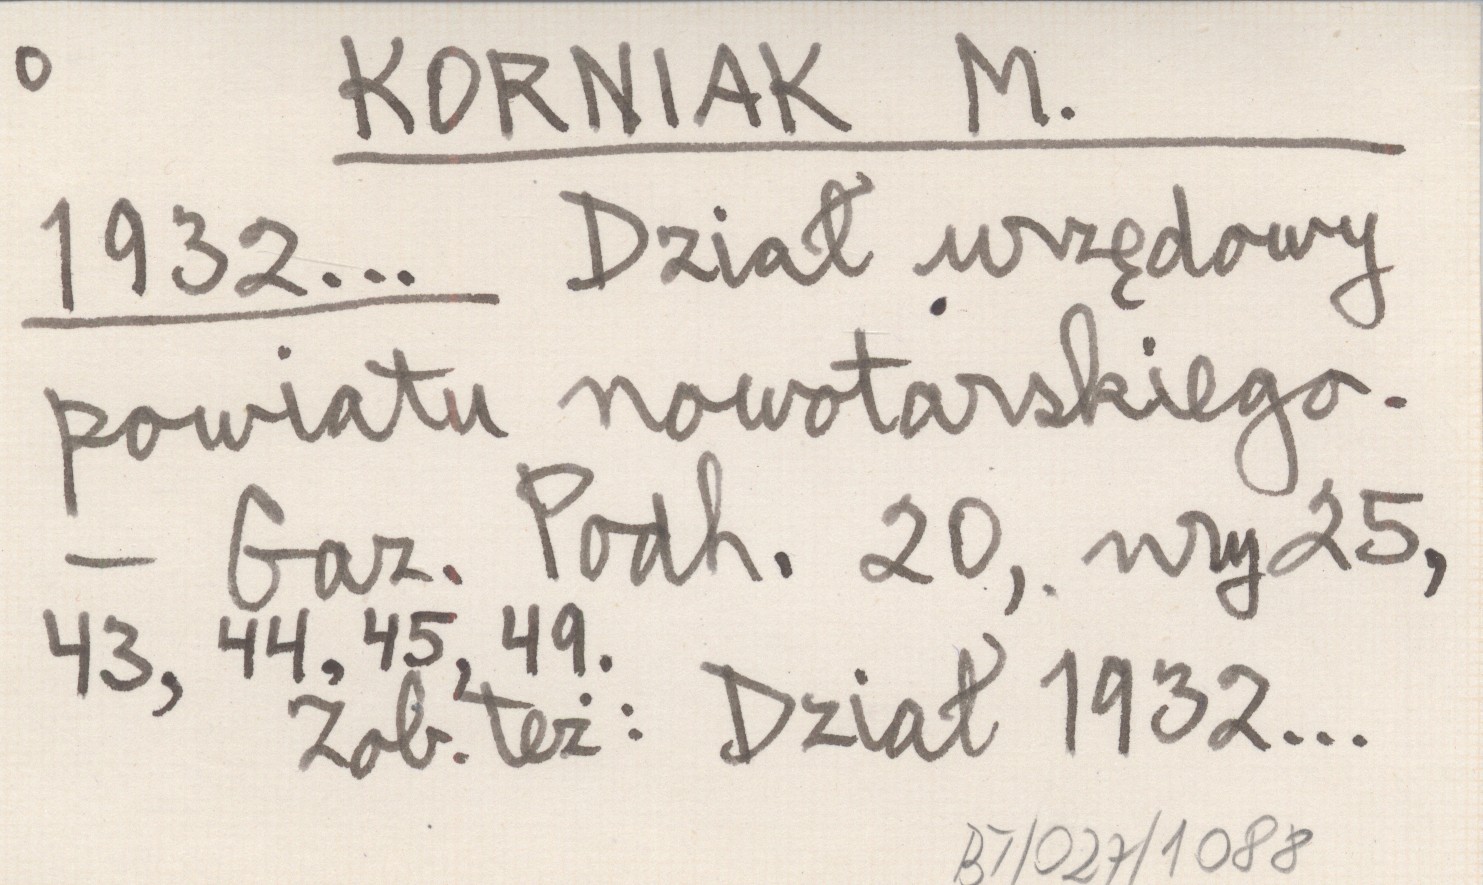 o KORNIAK M.
1932... Dział urzędowy
powiatu nowotarskiego.
— Gaz. Podh. 20, nry 25,
43, 44, 45, 49.
Zob. też: Dział 1932...
BT/027/1088